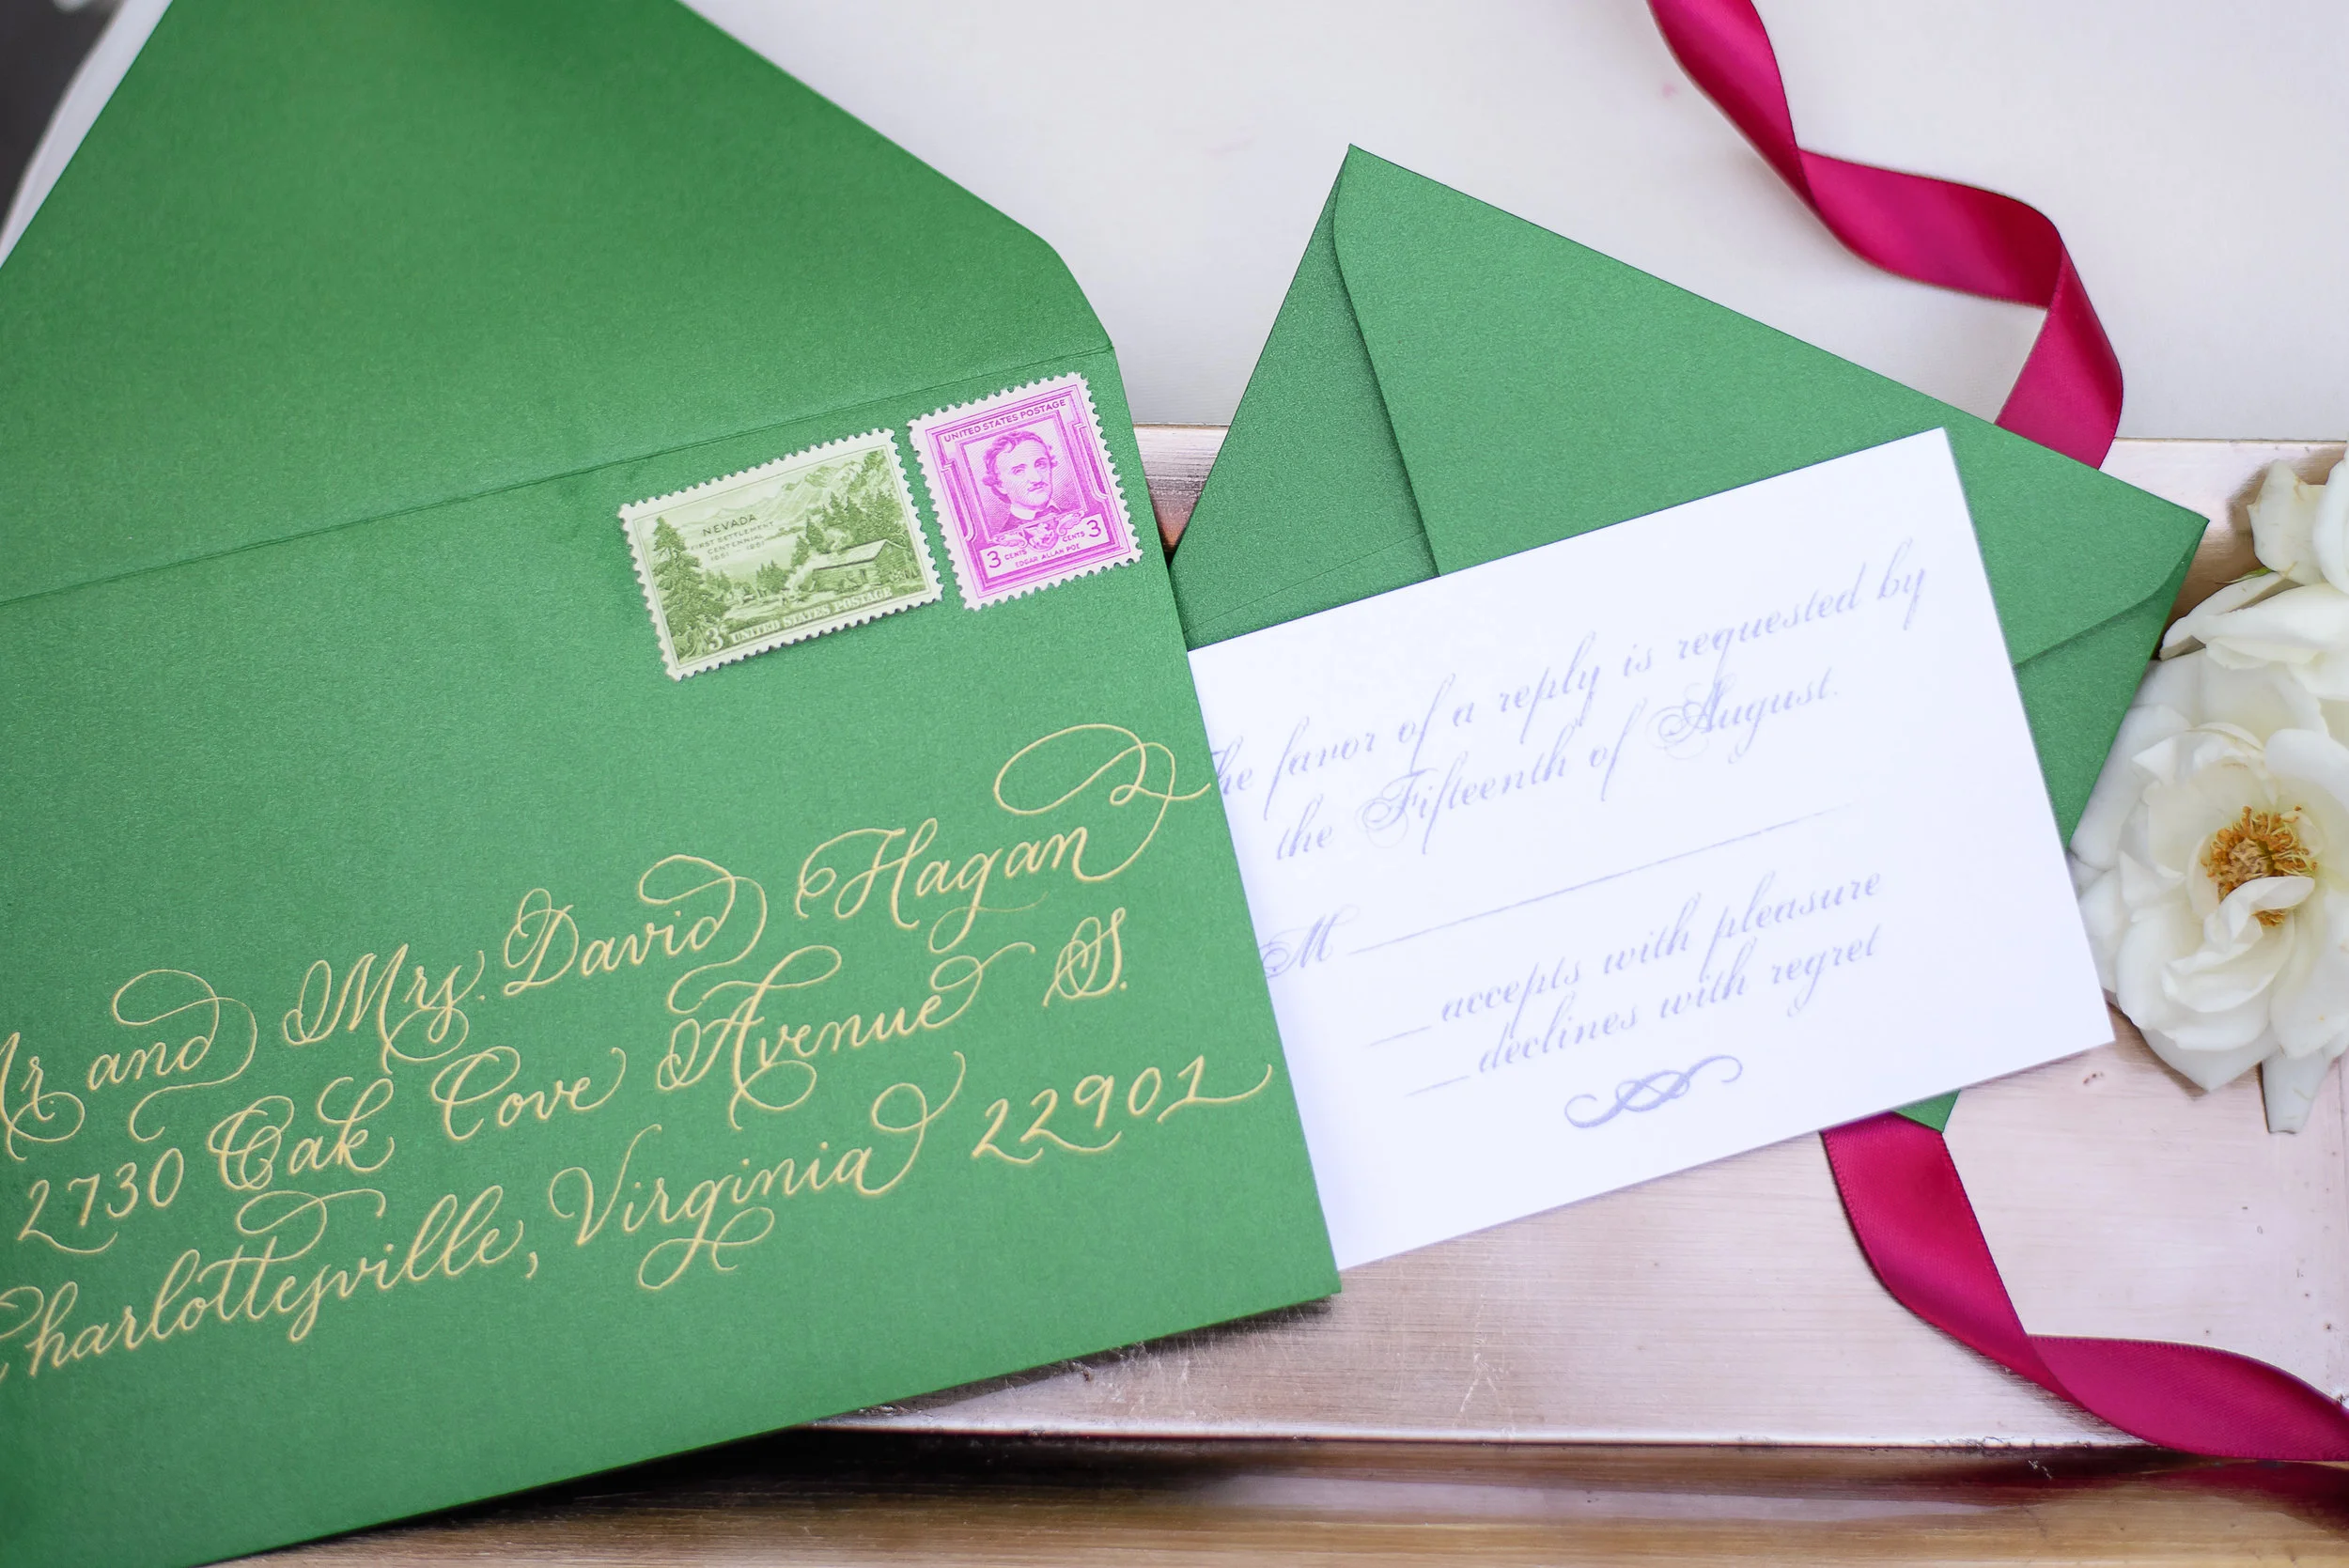 NEVADA
FIRST SETTLEMENT
CENTENNIAL
1851 1951
3¢ UNITED STATES POSTAGE
UNITED STATES POSTAGE
3 CENTS CENTS 3
EDGAR ALLAN POE
Mr. and Mrs. David Hagan
2730 Oak Cove Avenue S.
Charlottesville, Virginia 22901
The favor of a reply is requested by
the Fifteenth of August.
M
accepts with pleasure
declines with regret